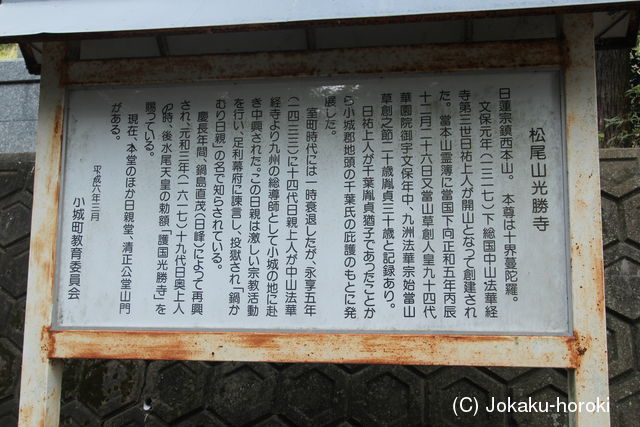 松尾山光勝寺
日蓮宗鎮西本山。　本尊は十界蔓陀羅。
文保元年(一三一七)下総国中山法華経
寺第三世日祐上人が開山となって創建され
た。当本山霊簿に当国下向正和五年丙辰
十二月二十六日又當山草創人皇九十四代
華園院御宇文保年中、九洲法華宗始當山
草創之節二十歳胤貞三十歳と記録あり。
日祐上人が千葉胤貞猶子であったことか
ら小城郡地頭の千葉氏の庇護のもとに発
展した。
室町時代には一時衰退したが、永享五年
(一四三三)に十四代日親上人が中山法華
経寺より九州の総導師として小城の地に赴
き中興された。この日親は激しい宗教活動
を行い、足利幕府に諫言し、投獄され、「鍋か
むり日親」の名で知られている。
慶長年間、鍋島直茂(日峰)によって再興
され、元和三年(一六一七)十九代日奥上人
の時、後水尾天皇の勅額、「護国光勝寺」を
賜っている。
現在、本堂のほか日親堂、清正公堂山門
がある。
平成六年三月
小城町教育委員会
(C) Jokaku-horoki